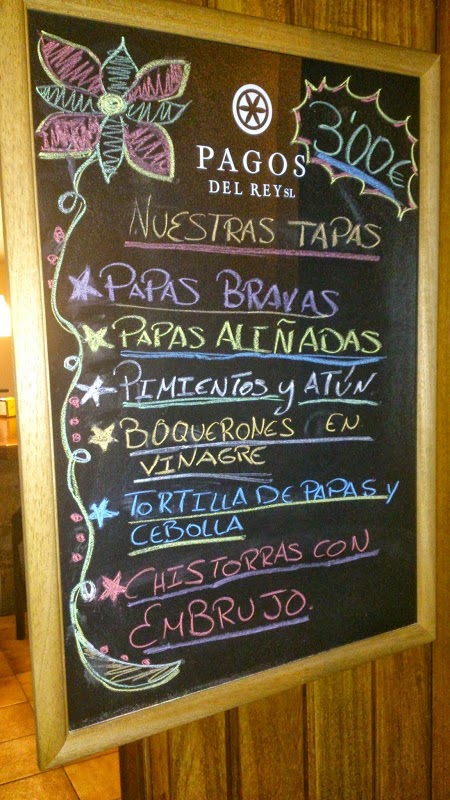 3'00€
PAGOS
DEL REY SL
NUESTRAS TAPAS
PAPAS BRAVAS
PAPAS ALIÑADAS
PIMIENTOS y ATÚN
BOQUERONES EN
VINAGRE
TORTILLA DE PAPAS y
CEBOLLA
CHISTORRAS CON
EMBRUJO.